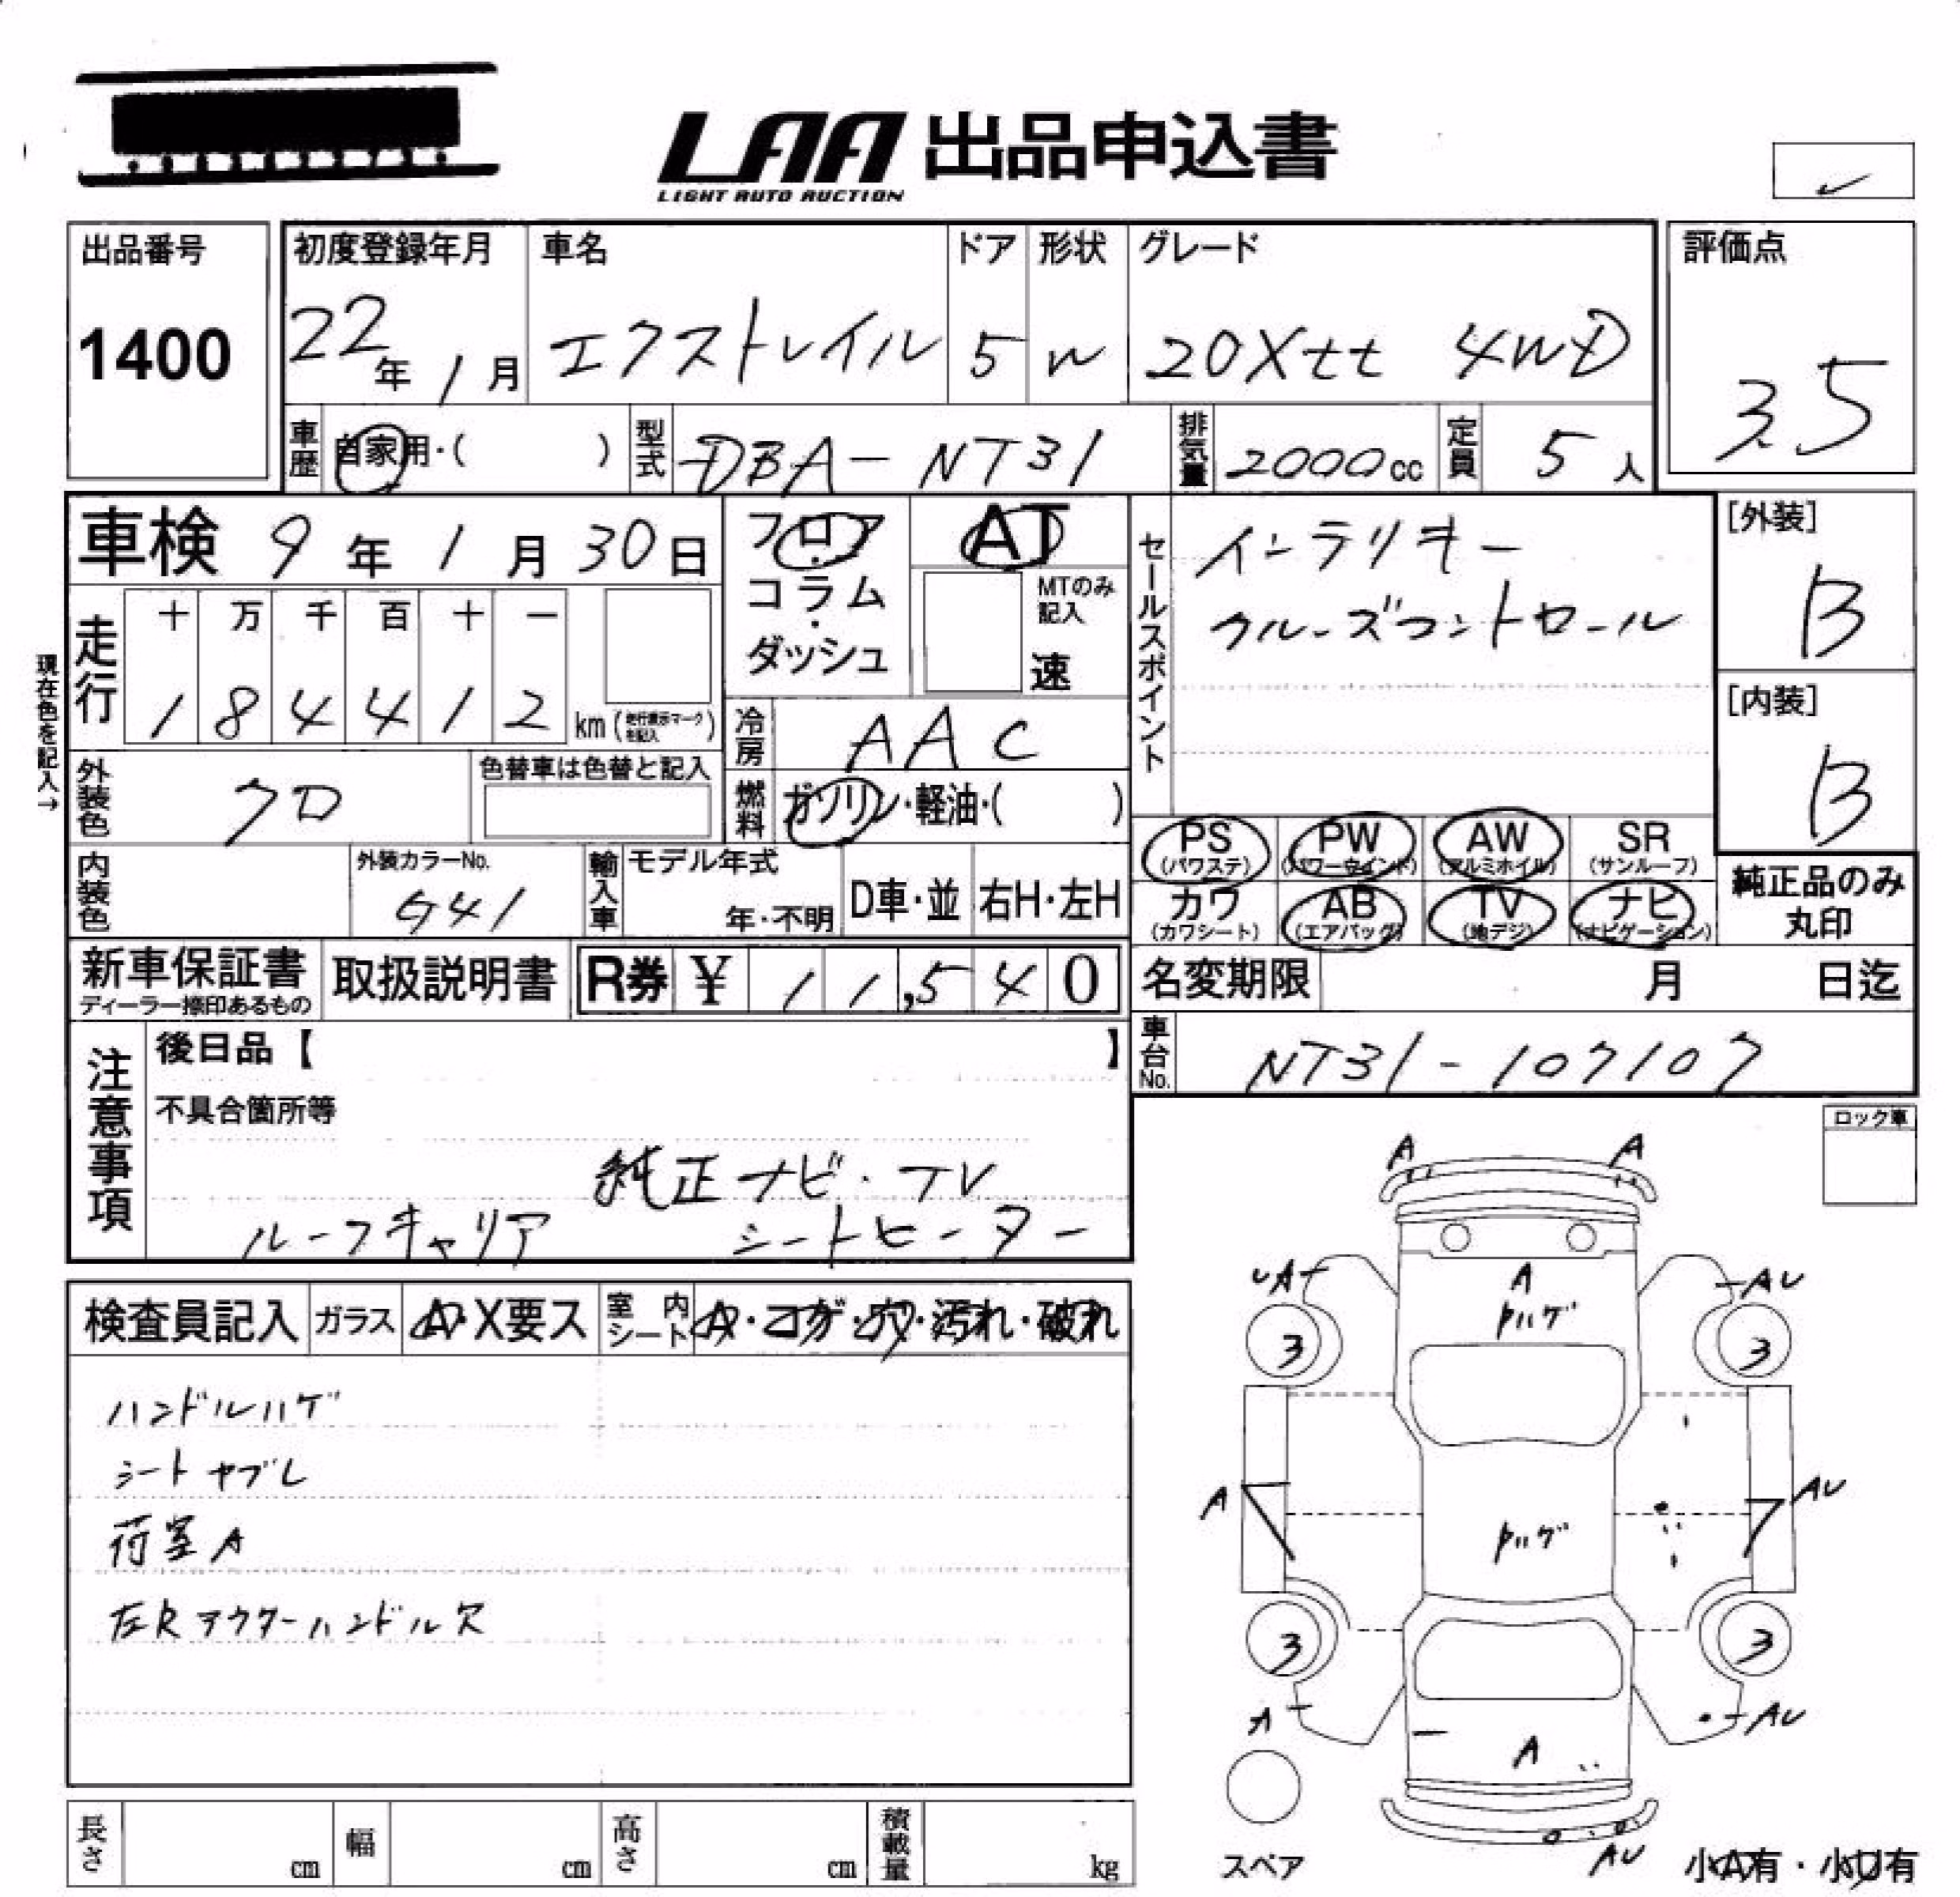 LAA 出品申込書
LIGHT AUTO AUCTION
出品番号
1400
初度登録年月
22年 1月
車名
エクストレイル
ドア
5
形状
W
グレード
20Xtt 4WD
評価点
3.5
車歴
自家用・( )
型式
DBA-NT31
排気量
2000cc
定員
5人
車検 9年 1月 30日
フロア・コラム・ダッシュ
AT
MTのみ記入
速
セールスポイント
インテリキー
クルーズコントロール
[外装]
B
[内装]
B
現在色を記入→
走行
十 万 千 百 十 一
1 8 4 4 1 2 km (走行表示マークを記入)
冷房
AAC
外装色
クロ
色替車は色替と記入
燃料
ガソリン・軽油・( )
PS (パワステ)
PW (パワーウインド)
AW (アルミホイル)
SR (サンルーフ)
カワ (カワシート)
AB (エアバッグ)
TV (地デジ)
ナビ (ナビゲーション)
純正品のみ丸印
内装色
外装カラーNo.
G41
輸入車
モデル年式
年・不明
D車・並
右H・左H
新車保証書
ディーラー捺印あるもの
取扱説明書
R券 ¥ 11,540
名変期限 月 日迄
車台No.
NT31-107107
注意事項
後日品【 】
不具合箇所等
純正ナビ・TV
ルーフキャリア シートヒーター
ロック車
検査員記入
ガラス
A・X要ス
室内シート
A・コゲ・穴・汚れ・破れ
ハンドルハゲ
シートヤブレ
荷室A
左Rアウターハンドル欠
A A
UA AU
A
Pハゲ
3 3
A AU
Pハゲ
3 3
A AU
A
AU
スペア
小A有・小U有
長さ cm
幅 cm
高さ cm
積載量 kg